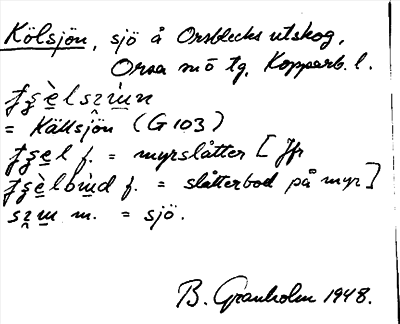 Kölsjön, sjö å Orsblecks utskog,
Orsa mō tg, Kopparb. l.
= Källsjön (G 103)
f. = myrslåtter [Jfr
f. = slåtterbod på myr]
m. = sjö.
B. Granholm 1948.